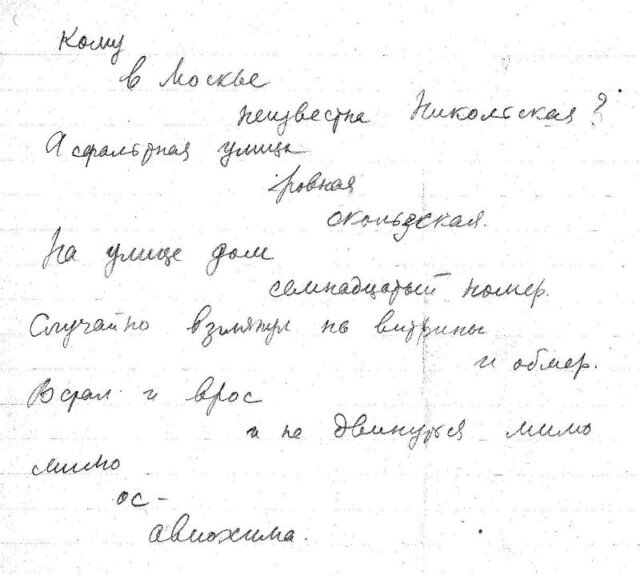 Кому
в Москве
неизвестна Никольская?
Асфальтная улица
ровная
скользская.
На улице дом
семнадцатый номер.
Случайно взглянул на витрины
и обмер.
Встал и врос
и не двинуться мимо
мимо
ос-
авиохима.